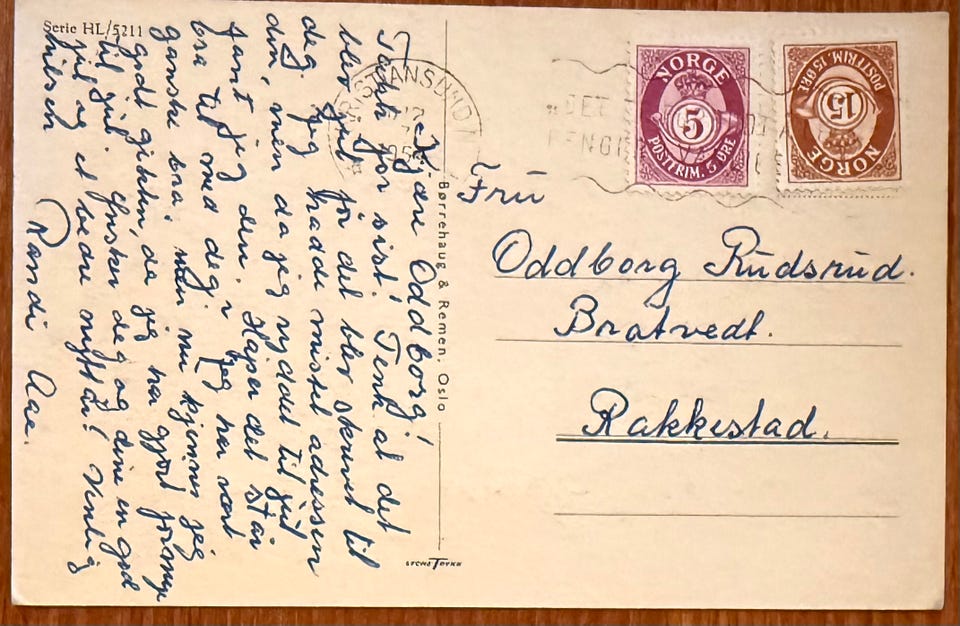 Serie HL/5211
Kjære Oddborg!
Takk for sist! Tenk at det
blev jul før det blev skrevet til
deg. Jeg hadde mistet adressen
din, men da jeg ryddet til jul
fant jeg den. Håper det står
bra til med deg. Jeg har vært
ganske bra, men nu kjennes jeg
godt gikten, da jeg har gjort formye
til jul. Ønsker deg og dine en god
jul og et bedre nyttår! Vennlig
hilsen
Randi Aae.
Børrehaug & Remen, Oslo
KRISTIANSUND N
NORGE
5
POSTFRIM. 5 ØRE
NORGE
15
POSTFRIM. 15 ØRE
Fru
Oddborg Rudsrud.
Bratvedt.
Rakkestad.